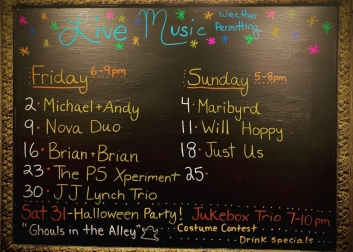 Live Music Weather Permitting
Friday 6-9pm
2. Michael+Andy
9. Nova Duo
16. Brian+Brian
23. The PS Xperiment
30. JJ Lynch Trio
Sunday 5-8pm
4. Maribyrd
11. Will Hoppy
18. Just Us
25.
Sat 31-Halloween Party! Jukebox Trio 7-10pm
"Ghouls in the Alley" Costume Contest
Drink Specials